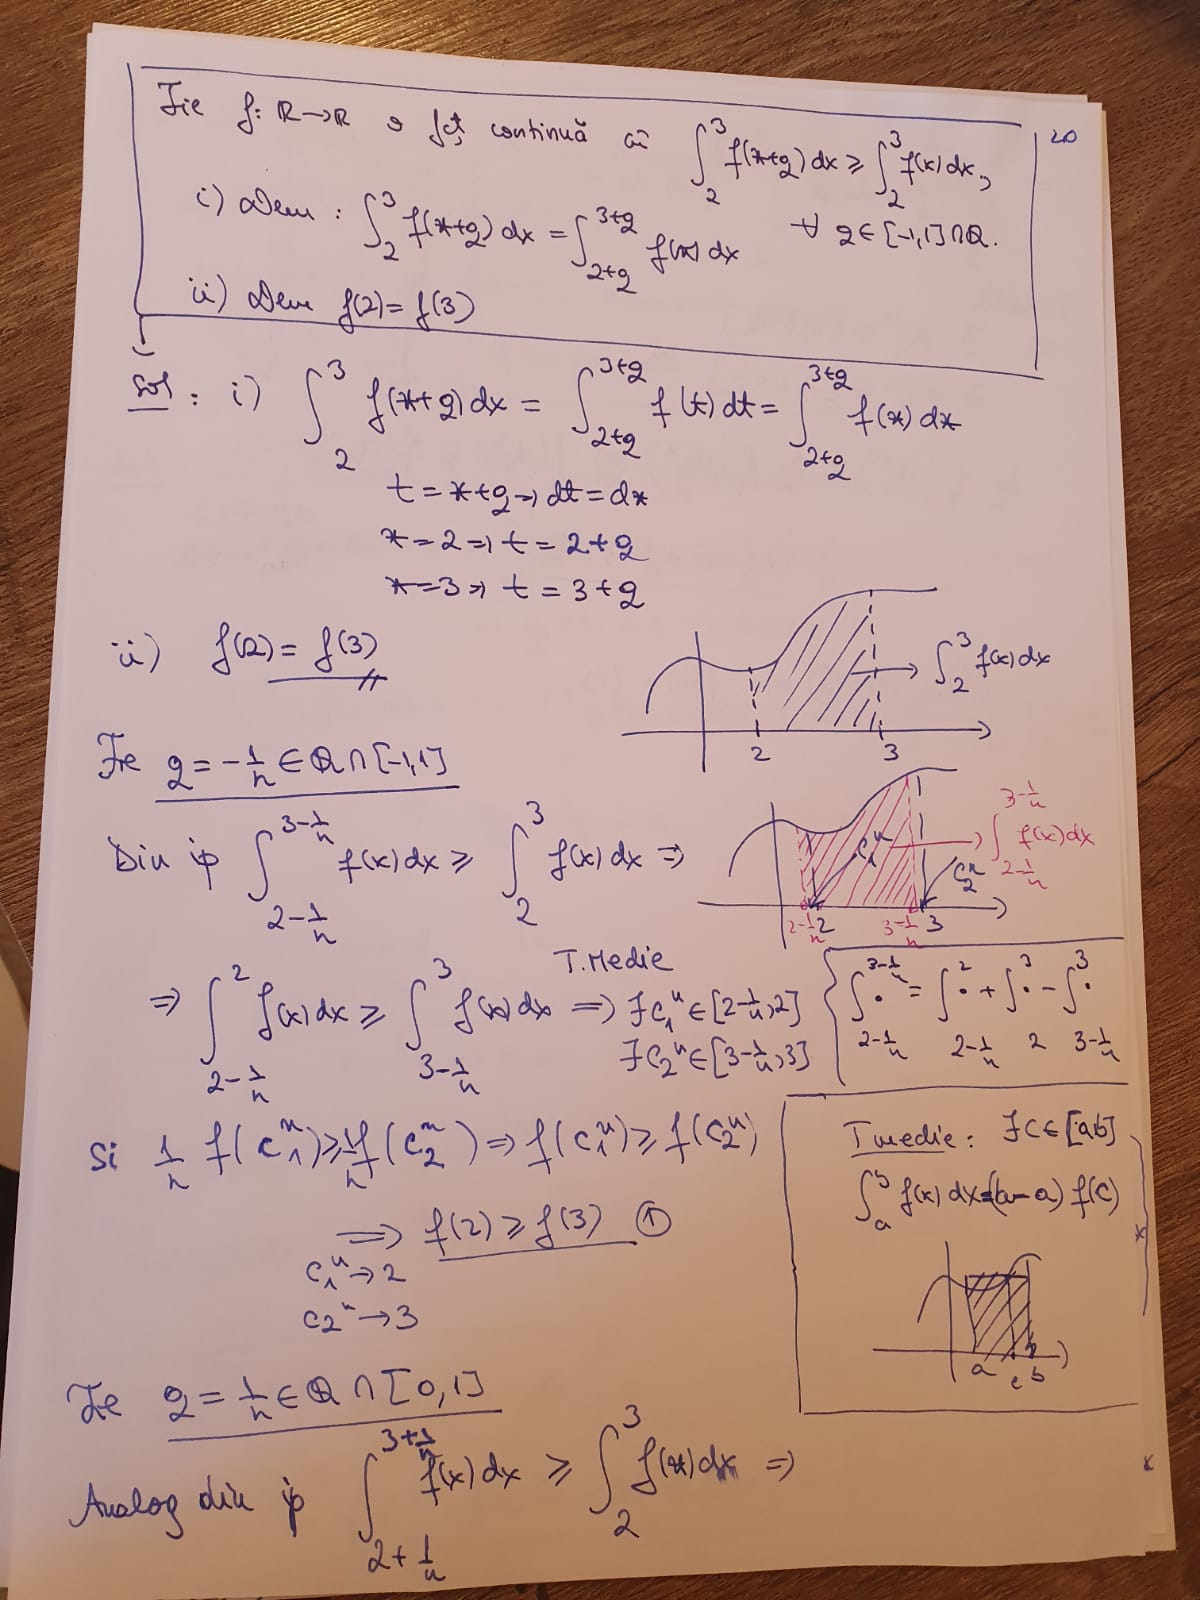 20
Fie f: ℝ→ℝ o fcț continuă cu ∫_2^3 f(x+q) dx ≥ ∫_2^3 f(x) dx,
∀ q ∈ [-1,1] ∩ ℚ.
i) Dem : ∫_2^3 f(x+q) dx = ∫_{2+q}^{3+q} f(x) dx
ii) Dem f(2) = f(3)
Sol : i) ∫_2^3 f(x+q) dx = ∫_{2+q}^{3+q} f(t) dt = ∫_{2+q}^{3+q} f(x) dx
t = x+q ⇒ dt = dx
x = 2 ⇒ t = 2+q
x = 3 ⇒ t = 3+q
ii) f(2) = f(3)
→ ∫_2^3 f(x) dx
2 3
Fie q = -1/n ∈ ℚ ∩ [-1,1]
Din ip ∫_{2-1/n}^{3-1/n} f(x) dx ≥ ∫_2^3 f(x) dx ⇒
→ ∫_{2-1/n}^{3-1/n} f(x) dx
c_1^n c_2^n
2-1/n 2 3-1/n 3
⇒ ∫_{2-1/n}^2 f(x) dx ≥ ∫_{3-1/n}^3 f(x) dx ⇒ ∃ c_1^n ∈ [2-1/n, 2]
T. Medie
∃ c_2^n ∈ [3-1/n, 3]
{ ∫_{2-1/n}^{3-1/n} • = ∫_{2-1/n}^2 • + ∫_2^3 • - ∫_{3-1/n}^3 •
Si 1/n f(c_1^n) ≥ 1/n f(c_2^n) ⇒ f(c_1^n) ≥ f(c_2^n)
⇒ f(2) ≥ f(3) ①
c_1^n → 2
c_2^n → 3
T medie : ∃ c ∈ [a,b]
∫_a^b f(x) dx = (b-a) f(c)
a c b
Fie q = 1/n ∈ ℚ ∩ [0,1]
Analog din ip ∫_{2+1/n}^{3+1/n} f(x) dx ≥ ∫_2^3 f(x) dx ⇒